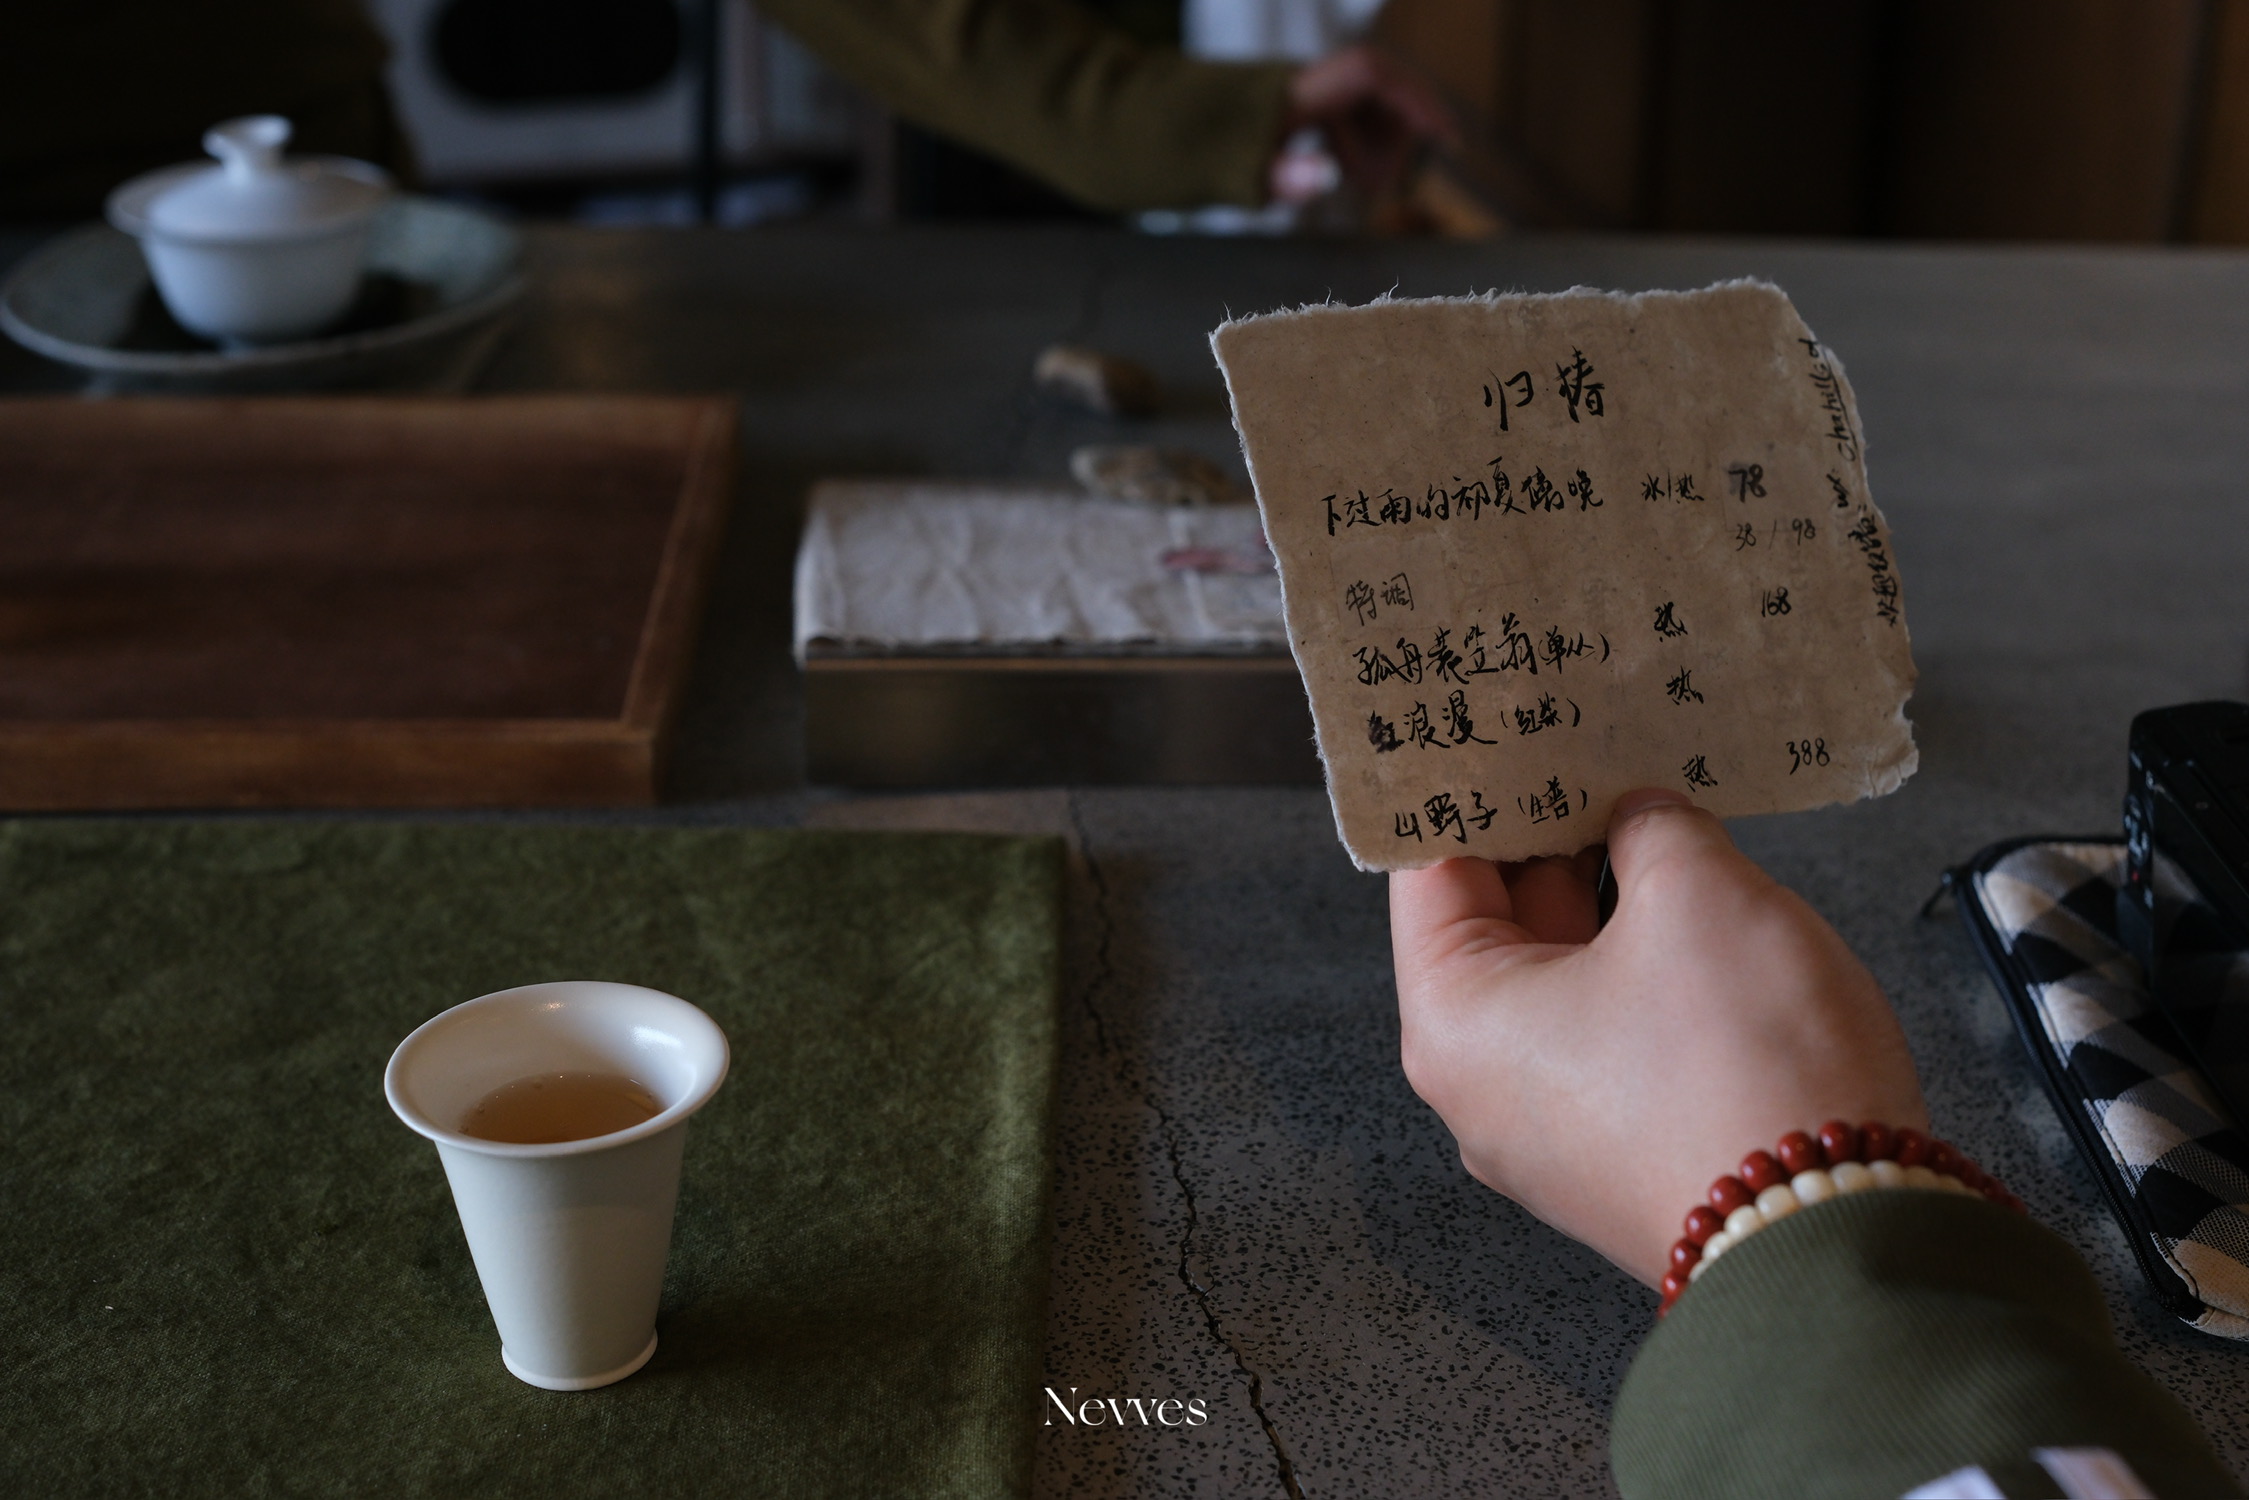 归椿
下过雨的初夏傍晚 冰/热 78
38 / 98
特调
孤舟蓑笠翁(单丛) 热 168
红浪漫(红茶) 热
山野子(生普) 热 388
Nevves